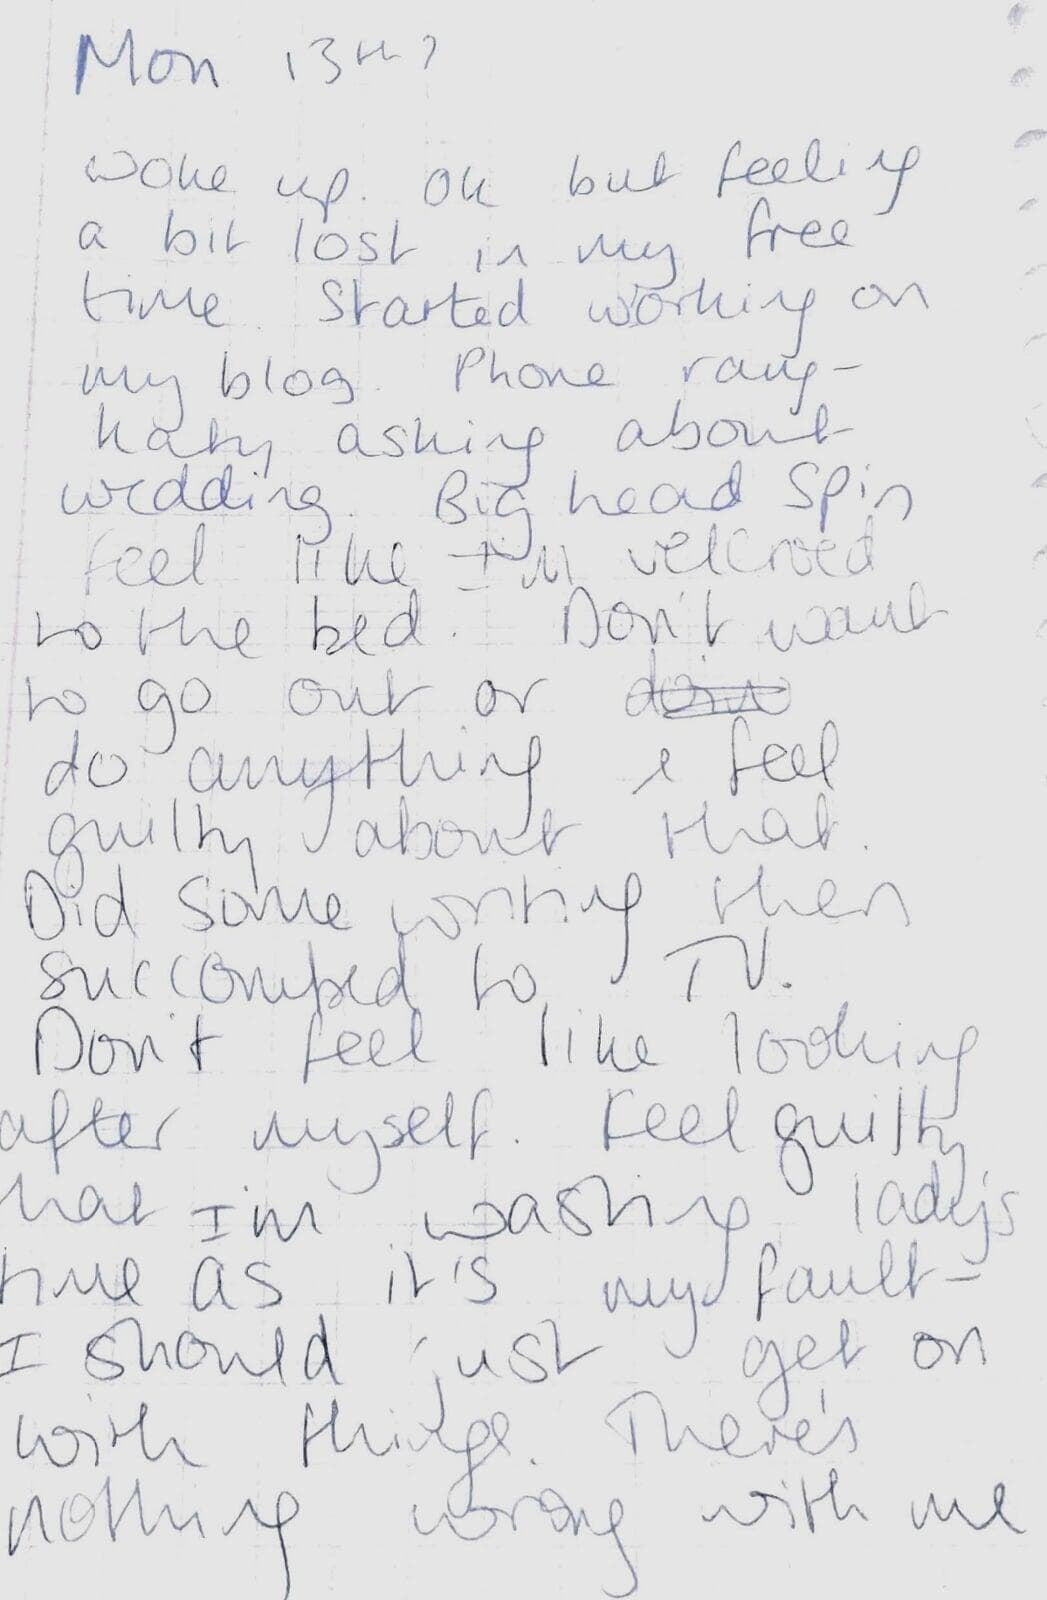 Mon 13th?
woke up. OK but feeling
a bit lost in my free
time. Started working on
my blog. Phone rang -
Katy asking about
wedding. Big head spin
feel like I'm velcroed
to the bed. Don't want
to go out or
do anything & feel
guilty about that.
Did some writing then
succombed to TV.
Don't feel like looking
after myself. Feel guilty
that I'm washing lady's
time as it's my fault -
I should just get on
with things. There's
nothing wrong with me